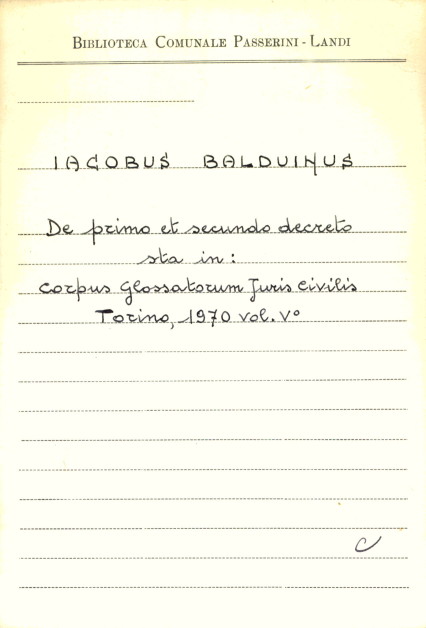 BIBLIOTECA COMUNALE PASSERINI - LANDI
IACOBUS BALDUINUS
De primo et secundo decreto
sta in:
Corpus Glossatorum Juris Civilis
Torino, 1970 vol. V°
C